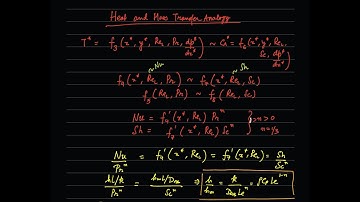 Heat and Mass Transfer Analogy
T* = f₃(x*, y*, Re_L, Pr, dp*/dx*) ~ C_A* = f₆(x*, y*, Re_L, Sc, dp*/dx*)
~Nu ~Sh
f₄(x*, Re_L, Pr) ~ f₇(x*, Re_L, Sc)
f₅(Re_L, Pr) ~ f₈(Re_L, Sc)
Nu = f₄'(x*, Re_L) Prⁿ } n > 0
Sh = f₇'(x*, Re_L) Scⁿ } n = 1/3
Nu/Prⁿ = f₄'(x*, Re_L) = f₇'(x*, Re_L) = Sh/Scⁿ
hL/k/Prⁿ = h_mL/D_AB/Scⁿ ⇒ h/h_m = k/D_AB Leⁿ = ρCp Le¹⁻ⁿ